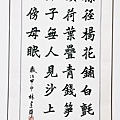 徑楊花鋪白氈
溪荷葉疊青錢筍
稚子無人見沙上
傍母眠